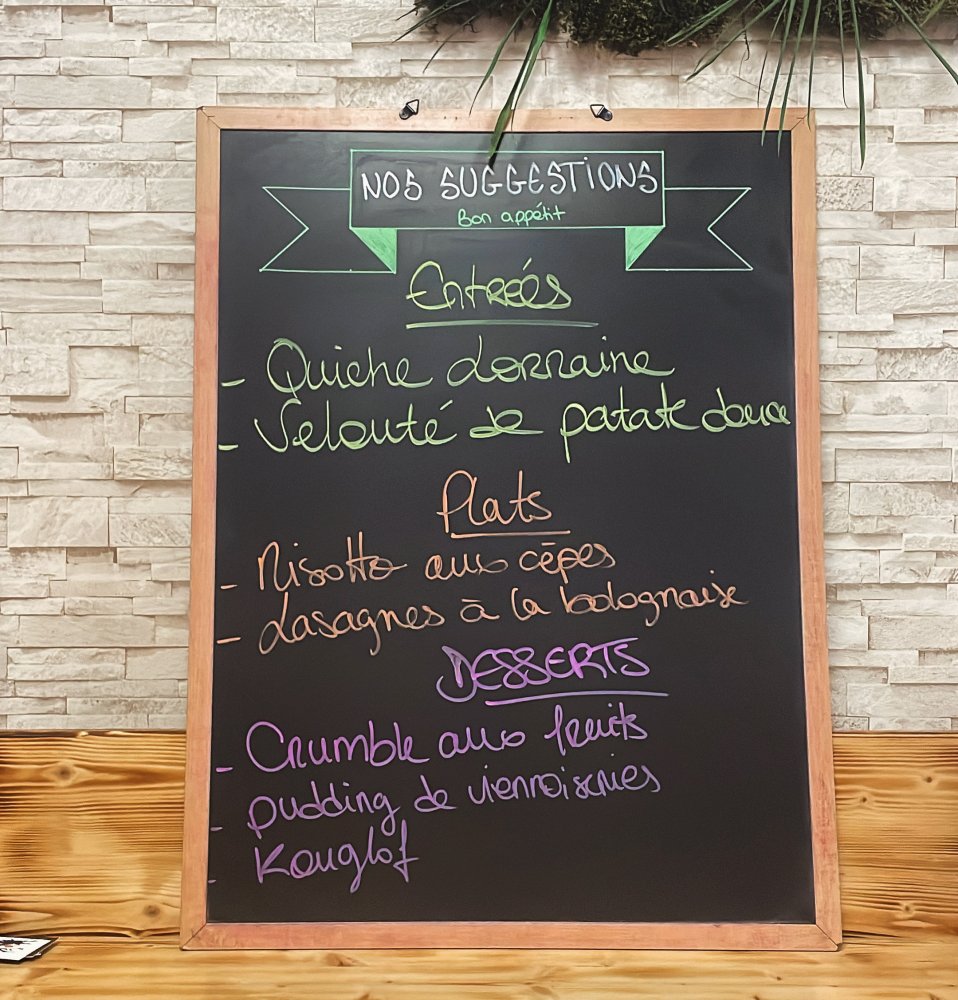 NOS SUGGESTIONS
Bon appétit
Entréés
- Quiche Lorraine
- Velouté de patate douce
Plats
- Risotto aux cèpes
- Lasagnes à la bolognaise
DESSERTS
- Crumble aux fruits
- pudding de viennoiseries
- Kouglof